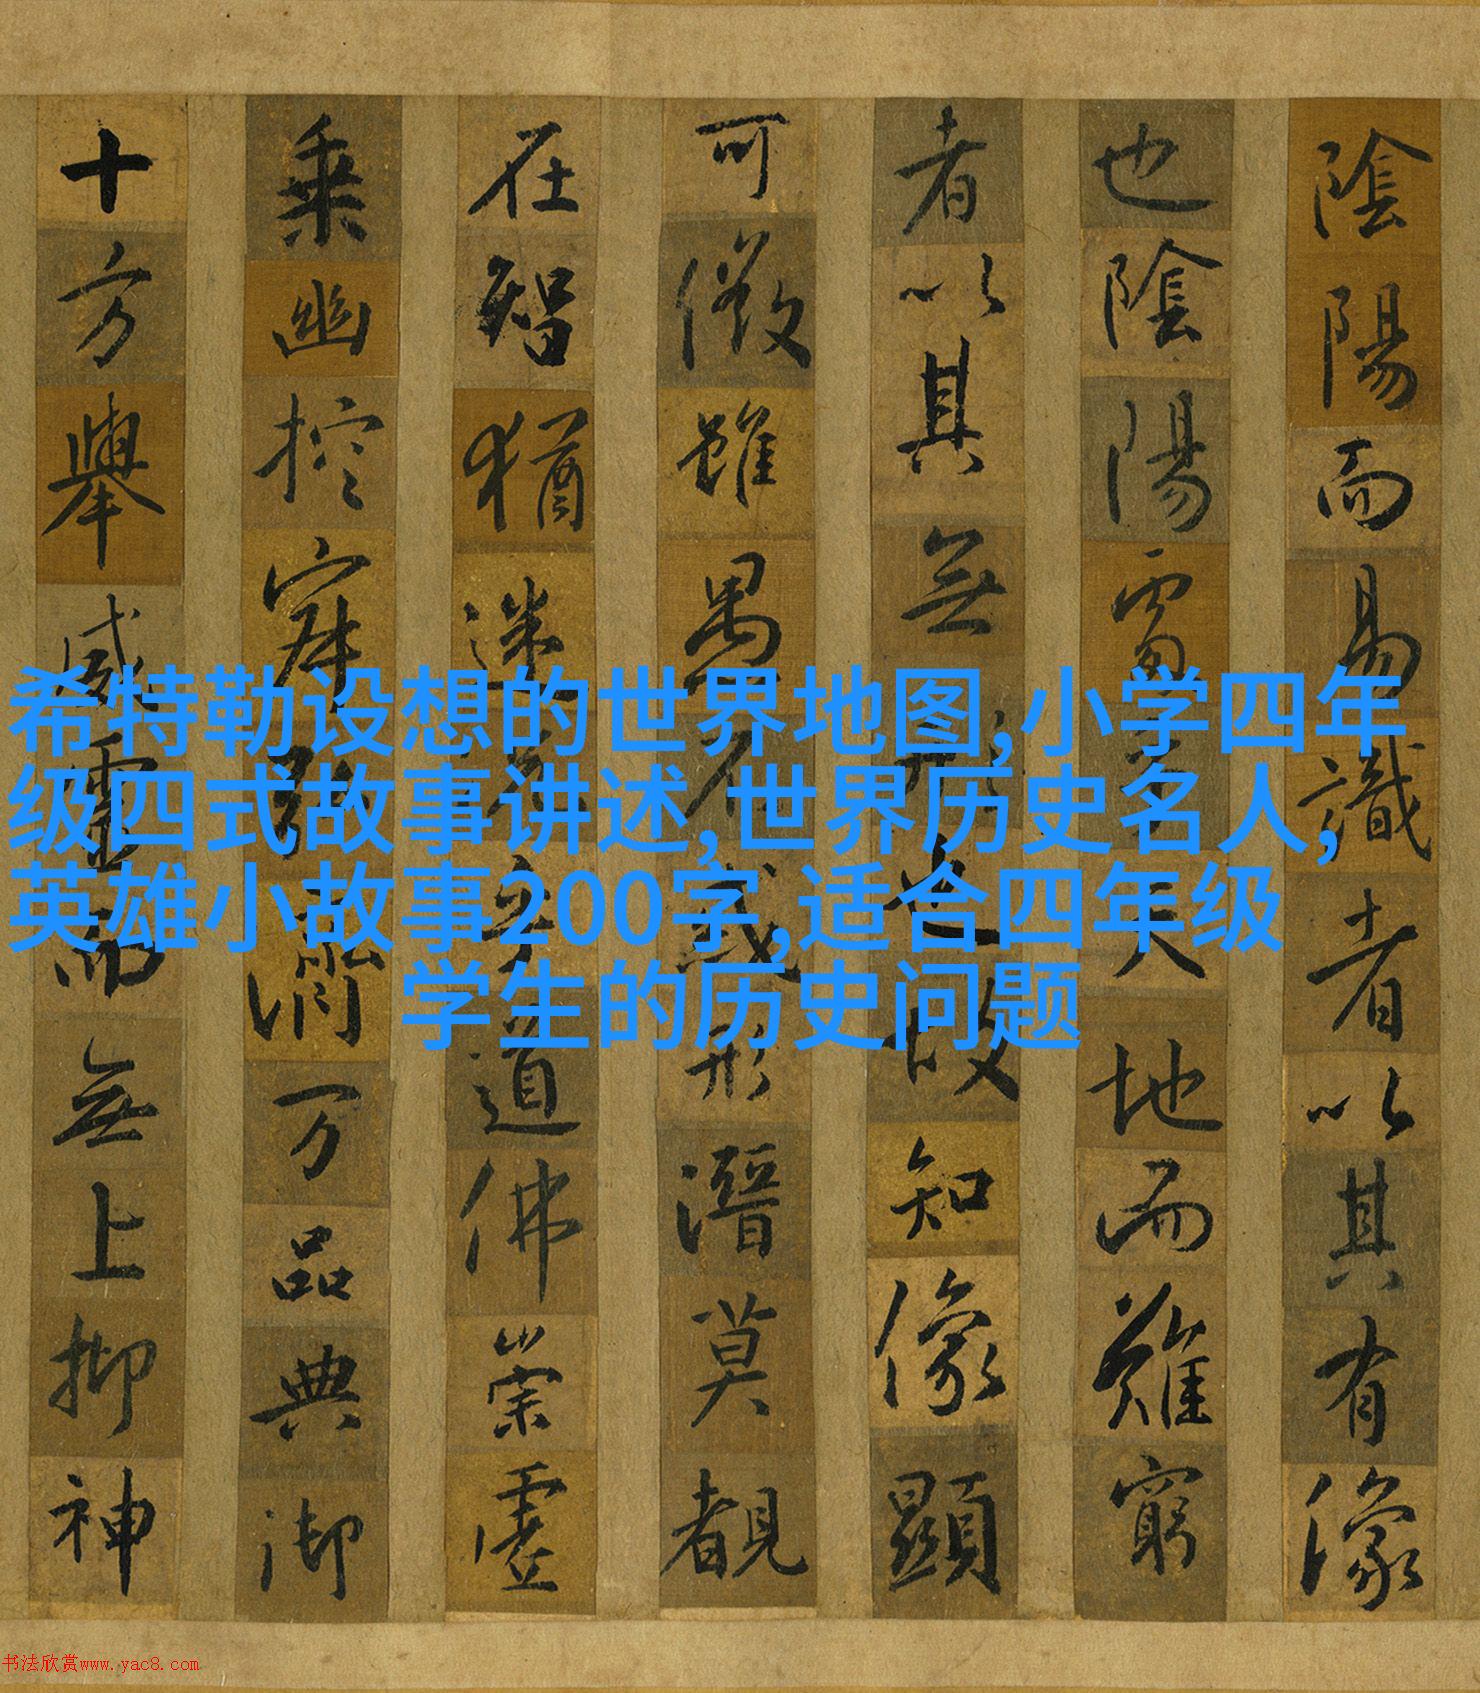 陰陽而易識者以其有像
也陰陽處乎天地而難窮
者以其無形也故知像顯
可徵雖愚不惑形潛莫覩
在智猶迷况乎道佛崇虛
乗幽控寂弘濟万品典御
十方舉威靈而無上抑神
希特勒设想的世界地图,小学四年
级四式故事讲述,世界历史名人,
英雄小故事200字,适合四年级
学生的历史问题
书法欣赏www.yac8.com